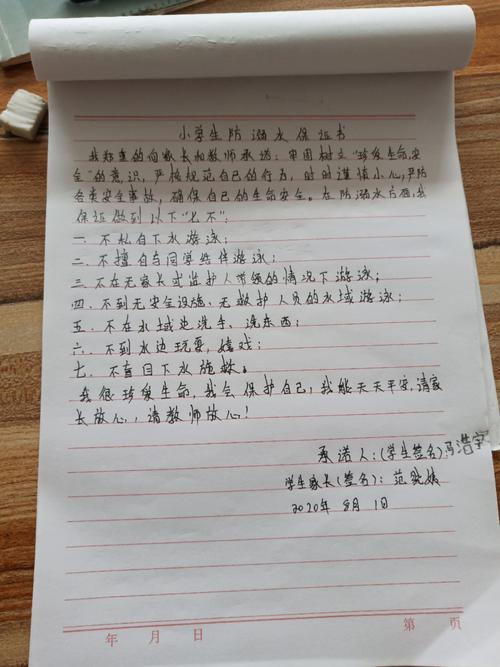 小学生防溺水保证书
我郑重的向家长和教师承诺：牢固树立“珍爱生命，安
全”的意识，严格规范自己的行为，时时谨慎小心，严防
各类安全事故，确保自己的生命安全。在防溺水方面，我
保证做到以下“七不”：
一．不私自下水游泳；
二．不擅自与同学结伴游泳；
三．不在无家长或监护人带领的情况下游泳；
四．不到无安全设施、无救护人员的水域游泳；
五．不在水域边洗手、洗东西；
六．不到水边玩耍，嬉戏；
七．不盲目下水施救。
我很珍爱生命，我会保护自己，我能天天平安，请家
长放心，请教师放心！
承诺人：(学生签名)冯浩宇
学生家长(签名)：范
2020年8月1日
年 月 日
第 页